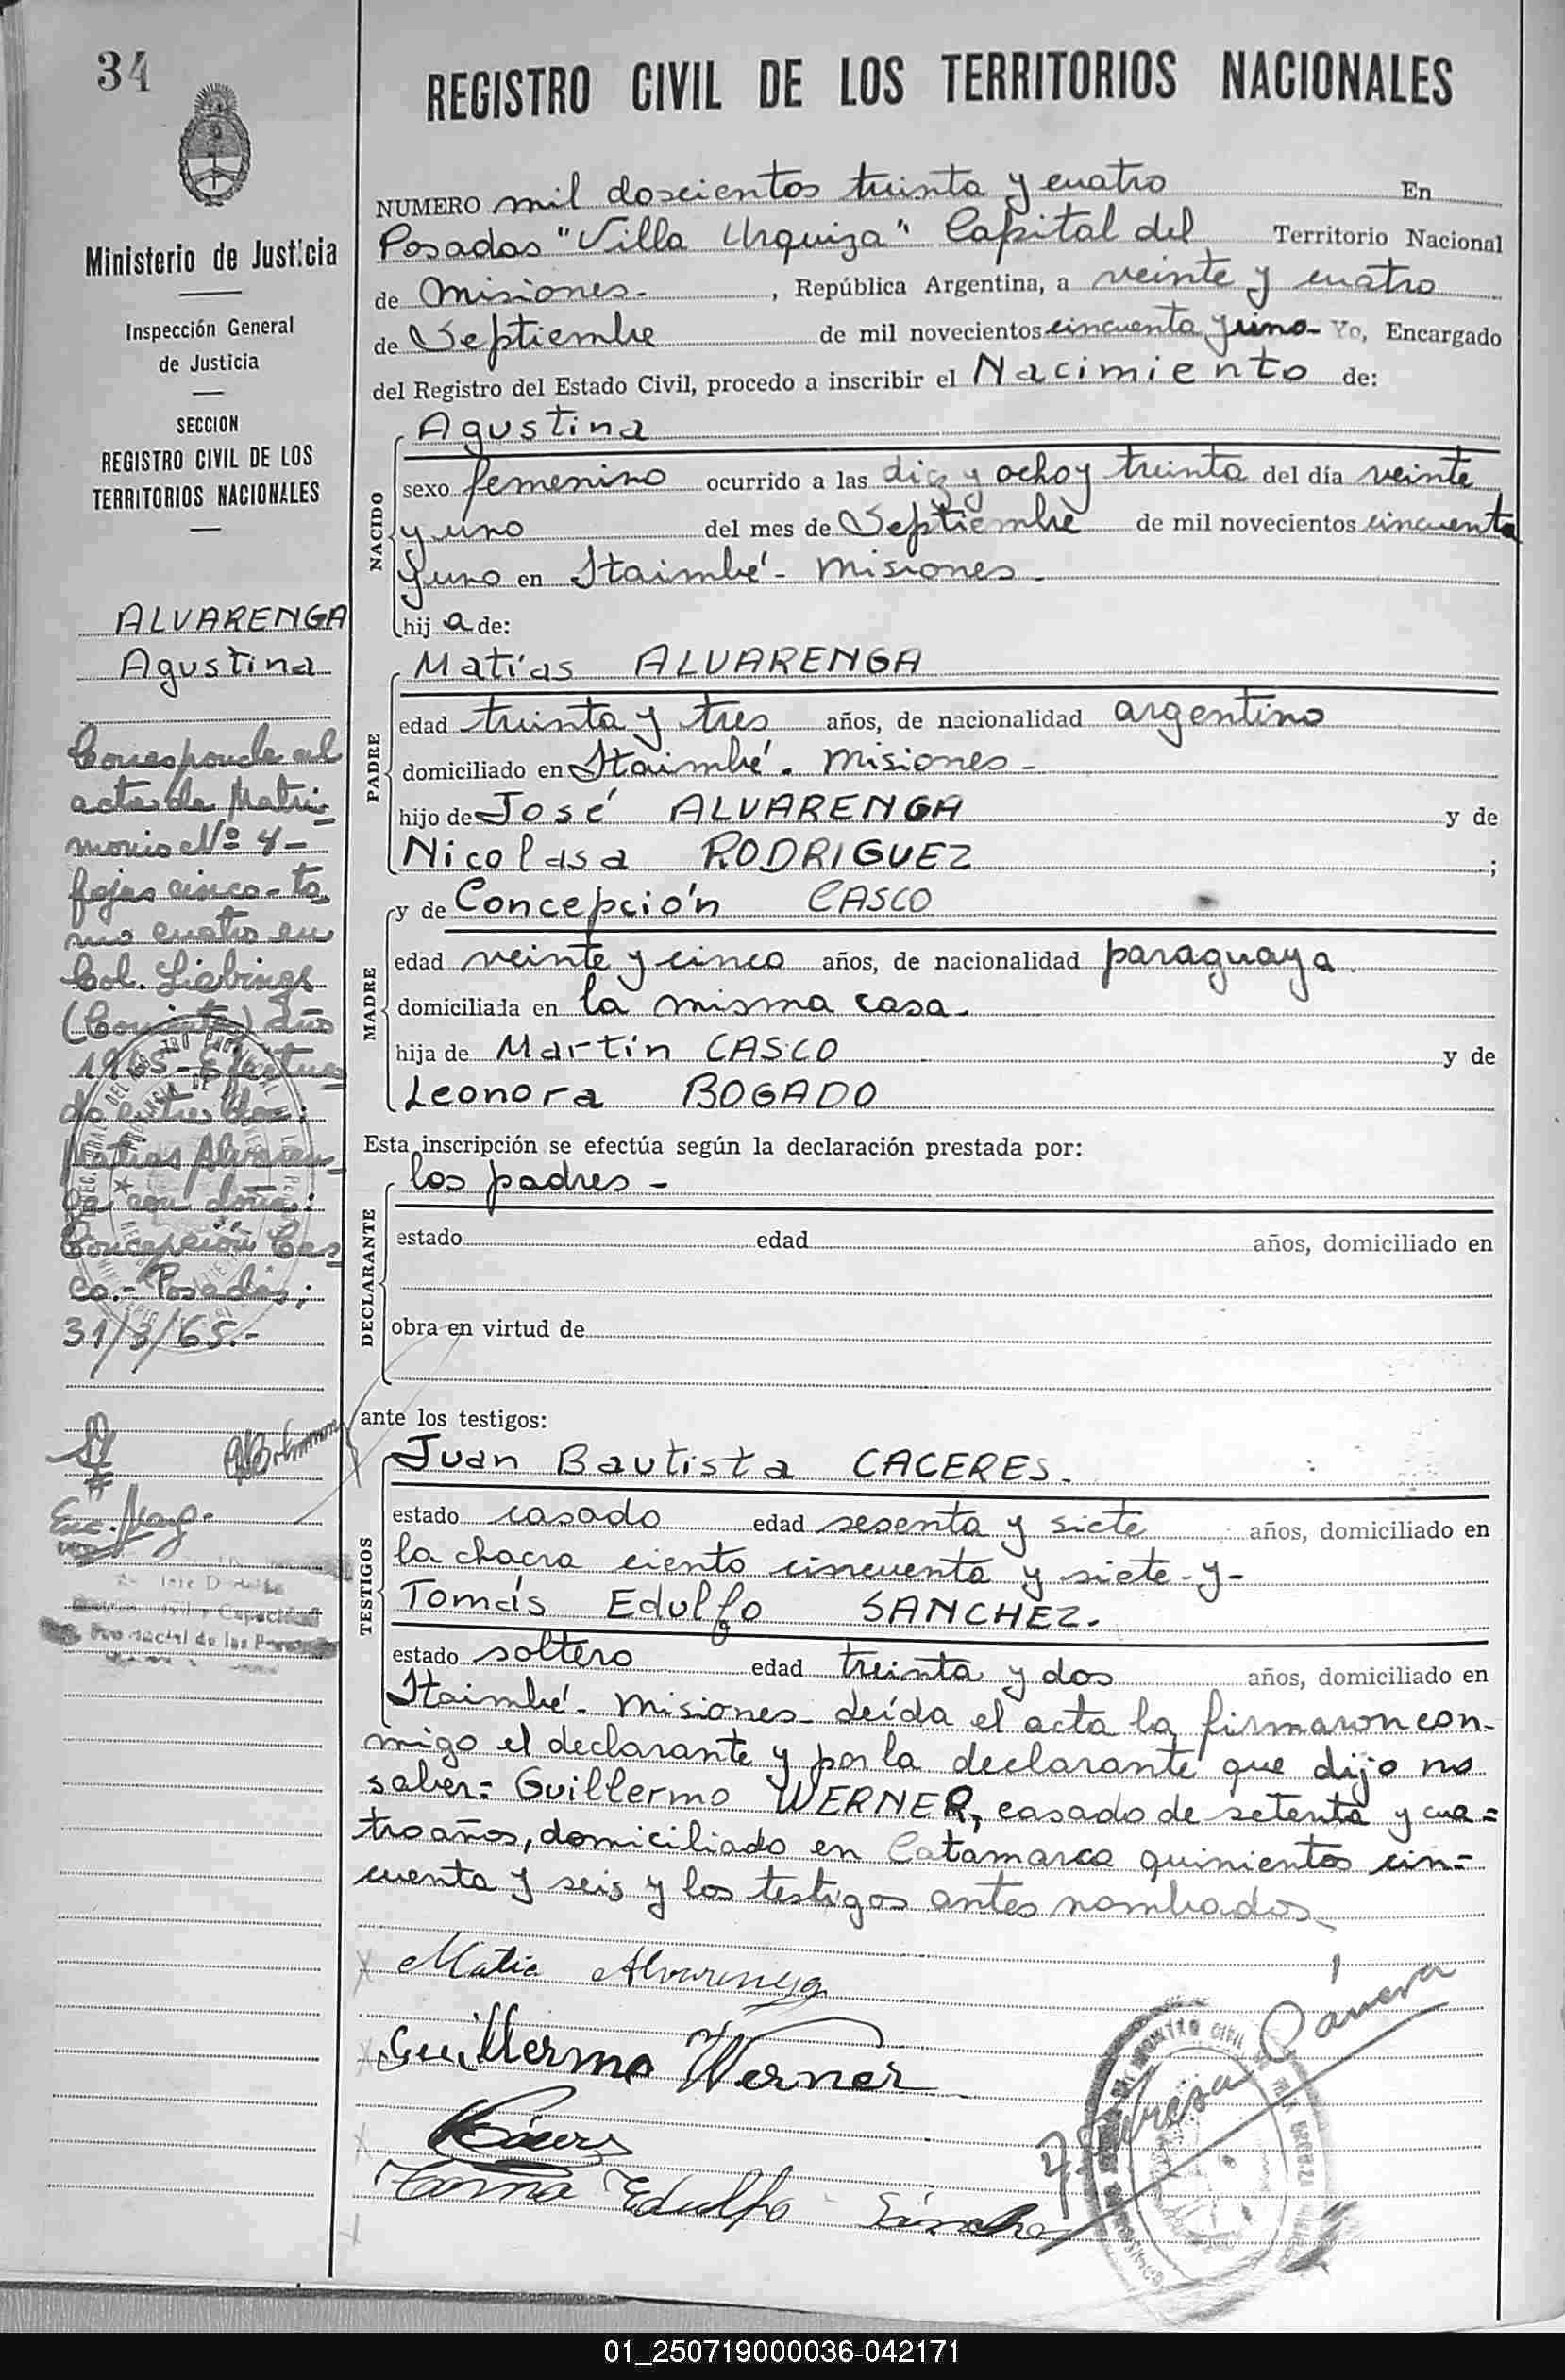 34
Ministerio de Justicia
Inspección General
de Justicia
SECCION
REGISTRO CIVIL DE LOS
TERRITORIOS NACIONALES
ALVARENGA
Agustina
Corresponde al
acta de Matri-
monio Nº 4-
fojas cinco - to-
mo cuatro en
Col. Liebings
(Corrientes) año
1965 - Efectua
do entre don:
Matias Alvaren-
ga con doña:
Concepción Cas
co.- Posadas,
31/3/65.-
REGISTRO CIVIL DE LOS TERRITORIOS NACIONALES
NUMERO mil doscientos treinta y cuatro En
Posadas "Villa Urquiza" Capital del Territorio Nacional
de Misiones.- , República Argentina, a veinte y cuatro
de Septiembre de mil novecientos cincuenta y uno- Yo, Encargado
del Registro del Estado Civil, procedo a inscribir el Nacimiento de:
NACIDO
Agustina
sexo femenino ocurrido a las diez y ocho y treinta del día veinte
y uno del mes de Septiembre de mil novecientos cincuenta
y uno en Itaimbé - Misiones-
hij a de:
PADRE
Matías ALVARENGA
edad treinta y tres años, de nacionalidad argentino
domiciliado en Itaimbé. Misiones-
hijo de José ALVARENGA y de
Nicolasa RODRIGUEZ ;
MADRE
y de Concepción CASCO
edad veinte y cinco años, de nacionalidad paraguaya.
domiciliada en la misma casa.
hija de Martín CASCO y de
Leonora BOGADO
Esta inscripción se efectúa según la declaración prestada por:
DECLARANTE
los padres -
estado edad años, domiciliado en
obra en virtud de
ante los testigos:
TESTIGOS
Juan Bautista CACERES.
estado casado edad sesenta y siete años, domiciliado en
la chacra ciento cincuenta y siete - y -
Tomás Edulfo SANCHEZ.
estado soltero edad treinta y dos años, domiciliado en
Itaimbé - Misiones - Leída el acta la firmaron con-
migo el declarante y por la declarante que dijo no
saber: Guillermo WERNER, casado de setenta y cua=
tro años, domiciliado en Catamarca quinientos cin-
cuenta y seis y los testigos antes nombrados
Matia Alvarenga
Guillermo Werner
Tomá Edulfo Sánchez
01_250719000036-042171